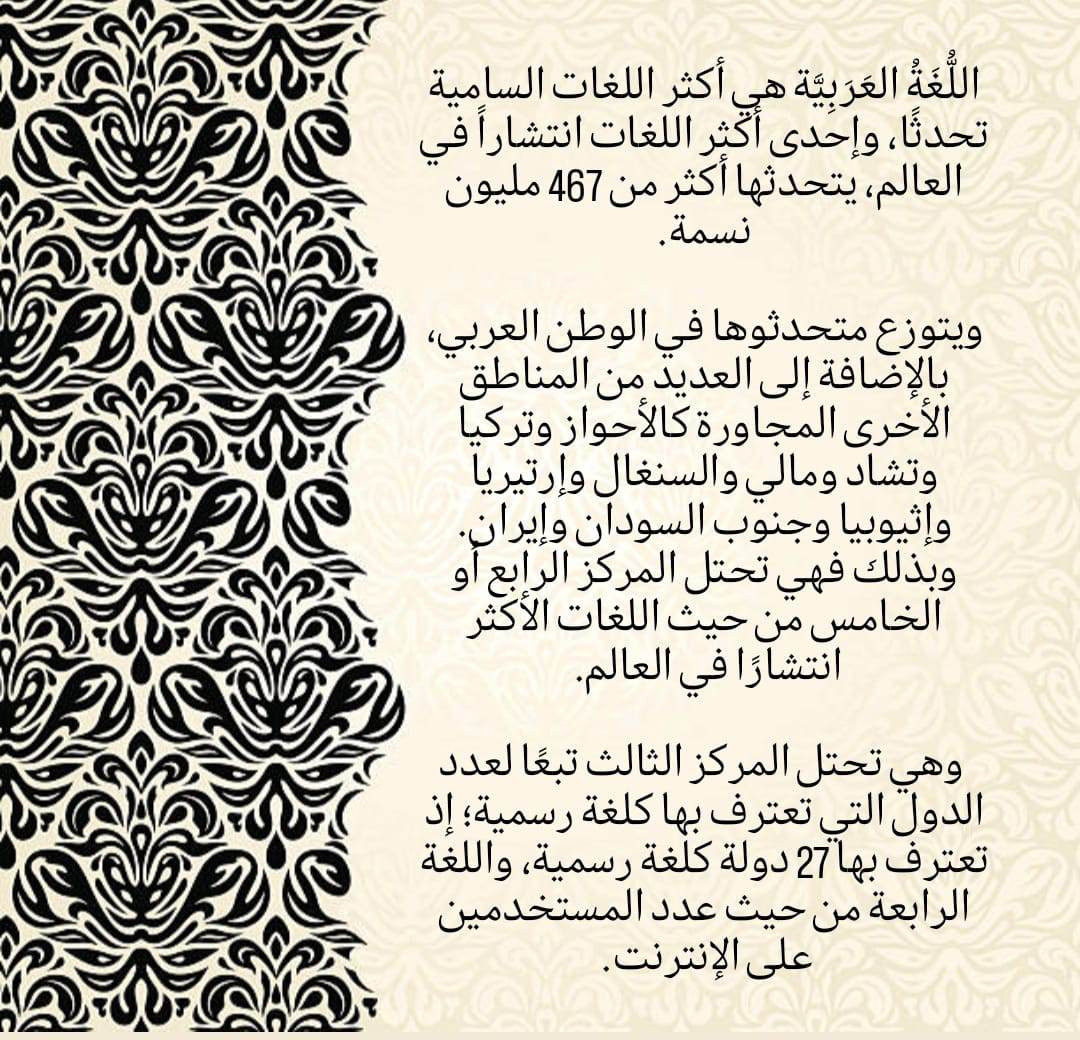 اللُّغَةُ العَرَبِيَّة هي أكثر اللغات السامية
تحدثًا، وإحدى أكثر اللغات انتشاراً في
العالم، يتحدثها أكثر من 467 مليون
نسمة.
ويتوزع متحدثوها في الوطن العربي،
بالإضافة إلى العديد من المناطق
الأخرى المجاورة كالأحواز وتركيا
وتشاد ومالي والسنغال وإرتيريا
وإثيوبيا وجنوب السودان وإيران.
وبذلك فهي تحتل المركز الرابع أو
الخامس من حيث اللغات الأكثر
انتشارًا في العالم.
وهي تحتل المركز الثالث تبعًا لعدد
الدول التي تعترف بها كلغة رسمية؛ إذ
تعترف بها 27 دولة كلغة رسمية، واللغة
الرابعة من حيث عدد المستخدمين
على الإنترنت.